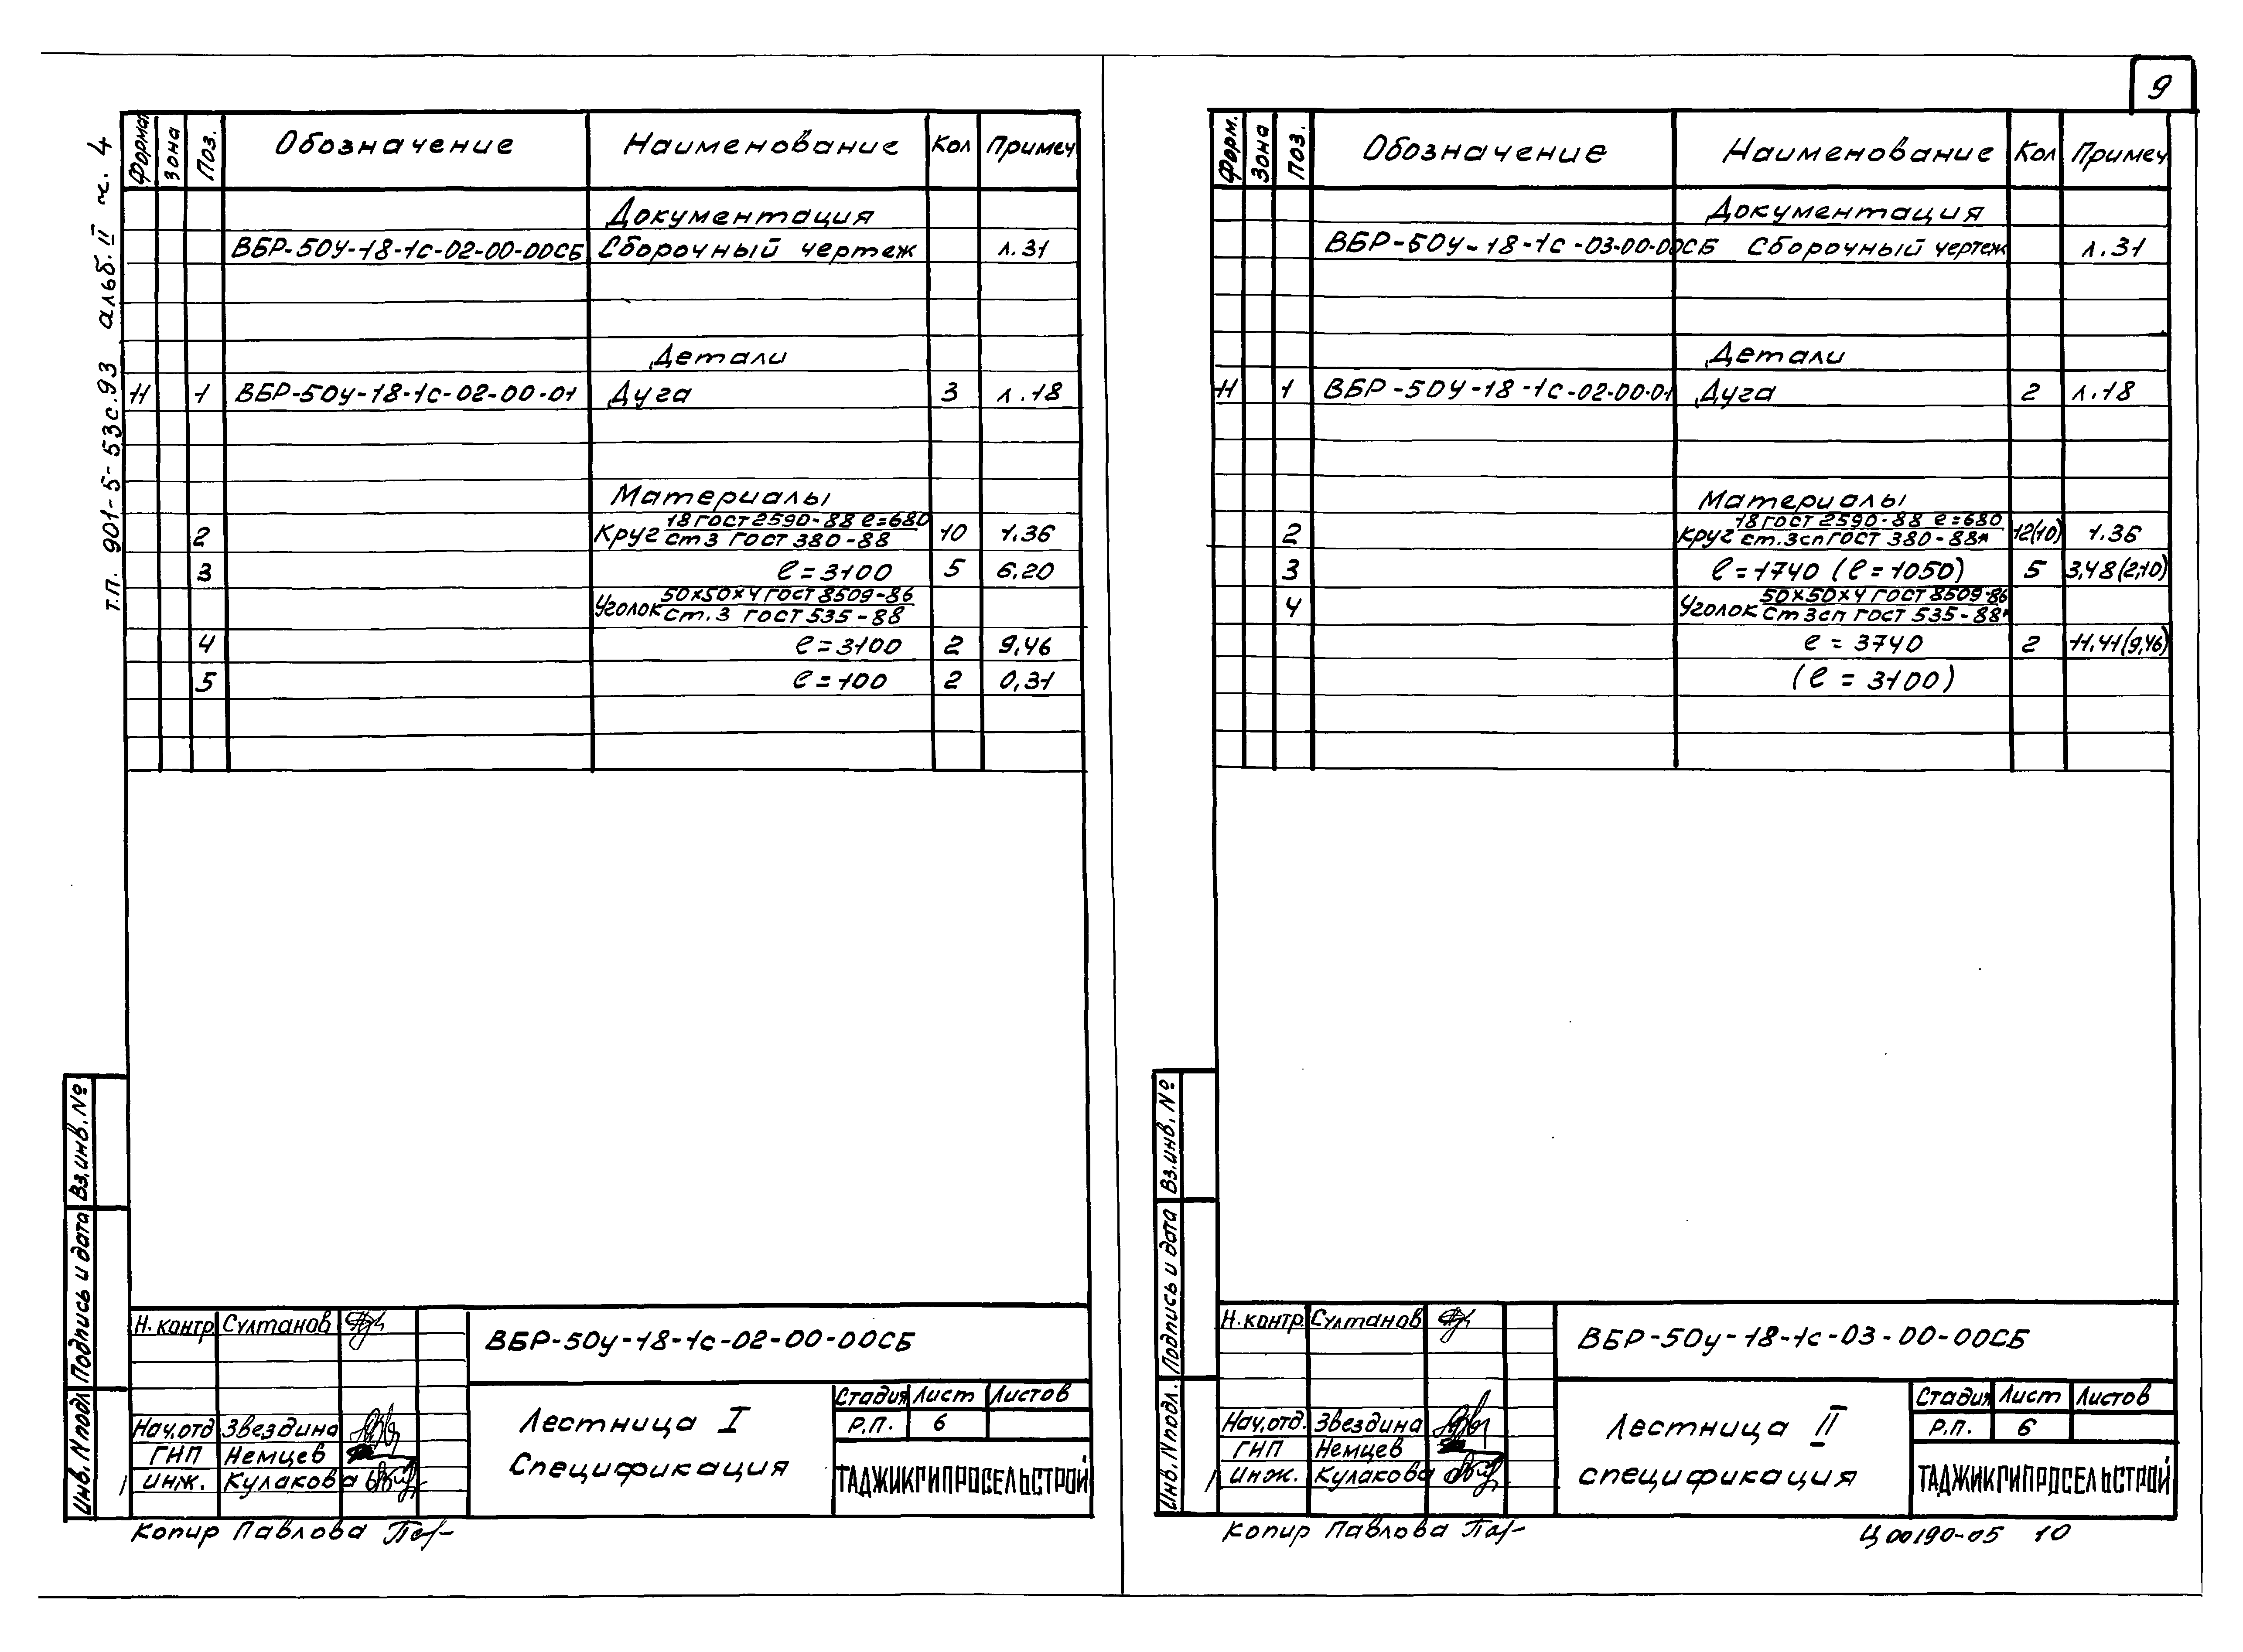 9
т.п. 901-5-53с.93 альб. II ч. 4
Формат Зона Поз. Обозначение Наименование Кол Примеч
Документация
ВБР-50у-18-1с-02-00-00СБ Сборочный чертеж л.31
Детали
И 1 ВБР-50у-18-1с-02-00-01 Дуга 3 л.18
Материалы
2 Круг 18 ГОСТ 2590-88 e=680 / Ст3 ГОСТ 380-88 10 1.36
3 e=3100 5 6,20
Уголок 50х50х4 ГОСТ 8509-86 / Ст.3 ГОСТ 535-88
4 e=3100 2 9,46
5 e=100 2 0,31
Вз.инв.№
Подпись и дата
Инв.№подл
Н.контр. Султанов
ВБР-50у-18-1с-02-00-00СБ
Нач.отд Звездина
ГНП Немцев
Инж. Кулакова
Лестница I
Спецификация
Стадия Лист Листов
Р.П. 6
ТАДЖИКГИПРОСЕЛЬСТРОЙ
Копир Павлова
Форм. Зона Поз. Обозначение Наименование Кол Примеч
Документация
ВБР-50у-18-1с-03-00-00СБ Сборочный чертеж л.31
Детали
И 1 ВБР-50У-18-1с-02-00-01 Дуга 2 л.18
Материалы
2 Круг 18 ГОСТ 2590-88 e=680 / ст.3сп ГОСТ 380-88* 12(10) 1.36
3 e=1740 (e=1050) 5 3,48(2,10)
4 Уголок 50х50х4 ГОСТ 8509-86 / Ст3сп ГОСТ 535-88*
e=3740 2 11,41(9,46)
(e=3100)
Вз.инв.№
Подпись и дата
Инв.№подл.
Н.контр. Султанов
ВБР-50у-18-1с-03-00-00СБ
Нач.отд. Звездина
ГНП Немцев
Инж. Кулакова
Лестница II
спецификация
Стадия Лист Листов
Р.П. 6
ТАДЖИКГИПРОСЕЛЬСТРОЙ
Копир Павлова
Ц00190-05 10